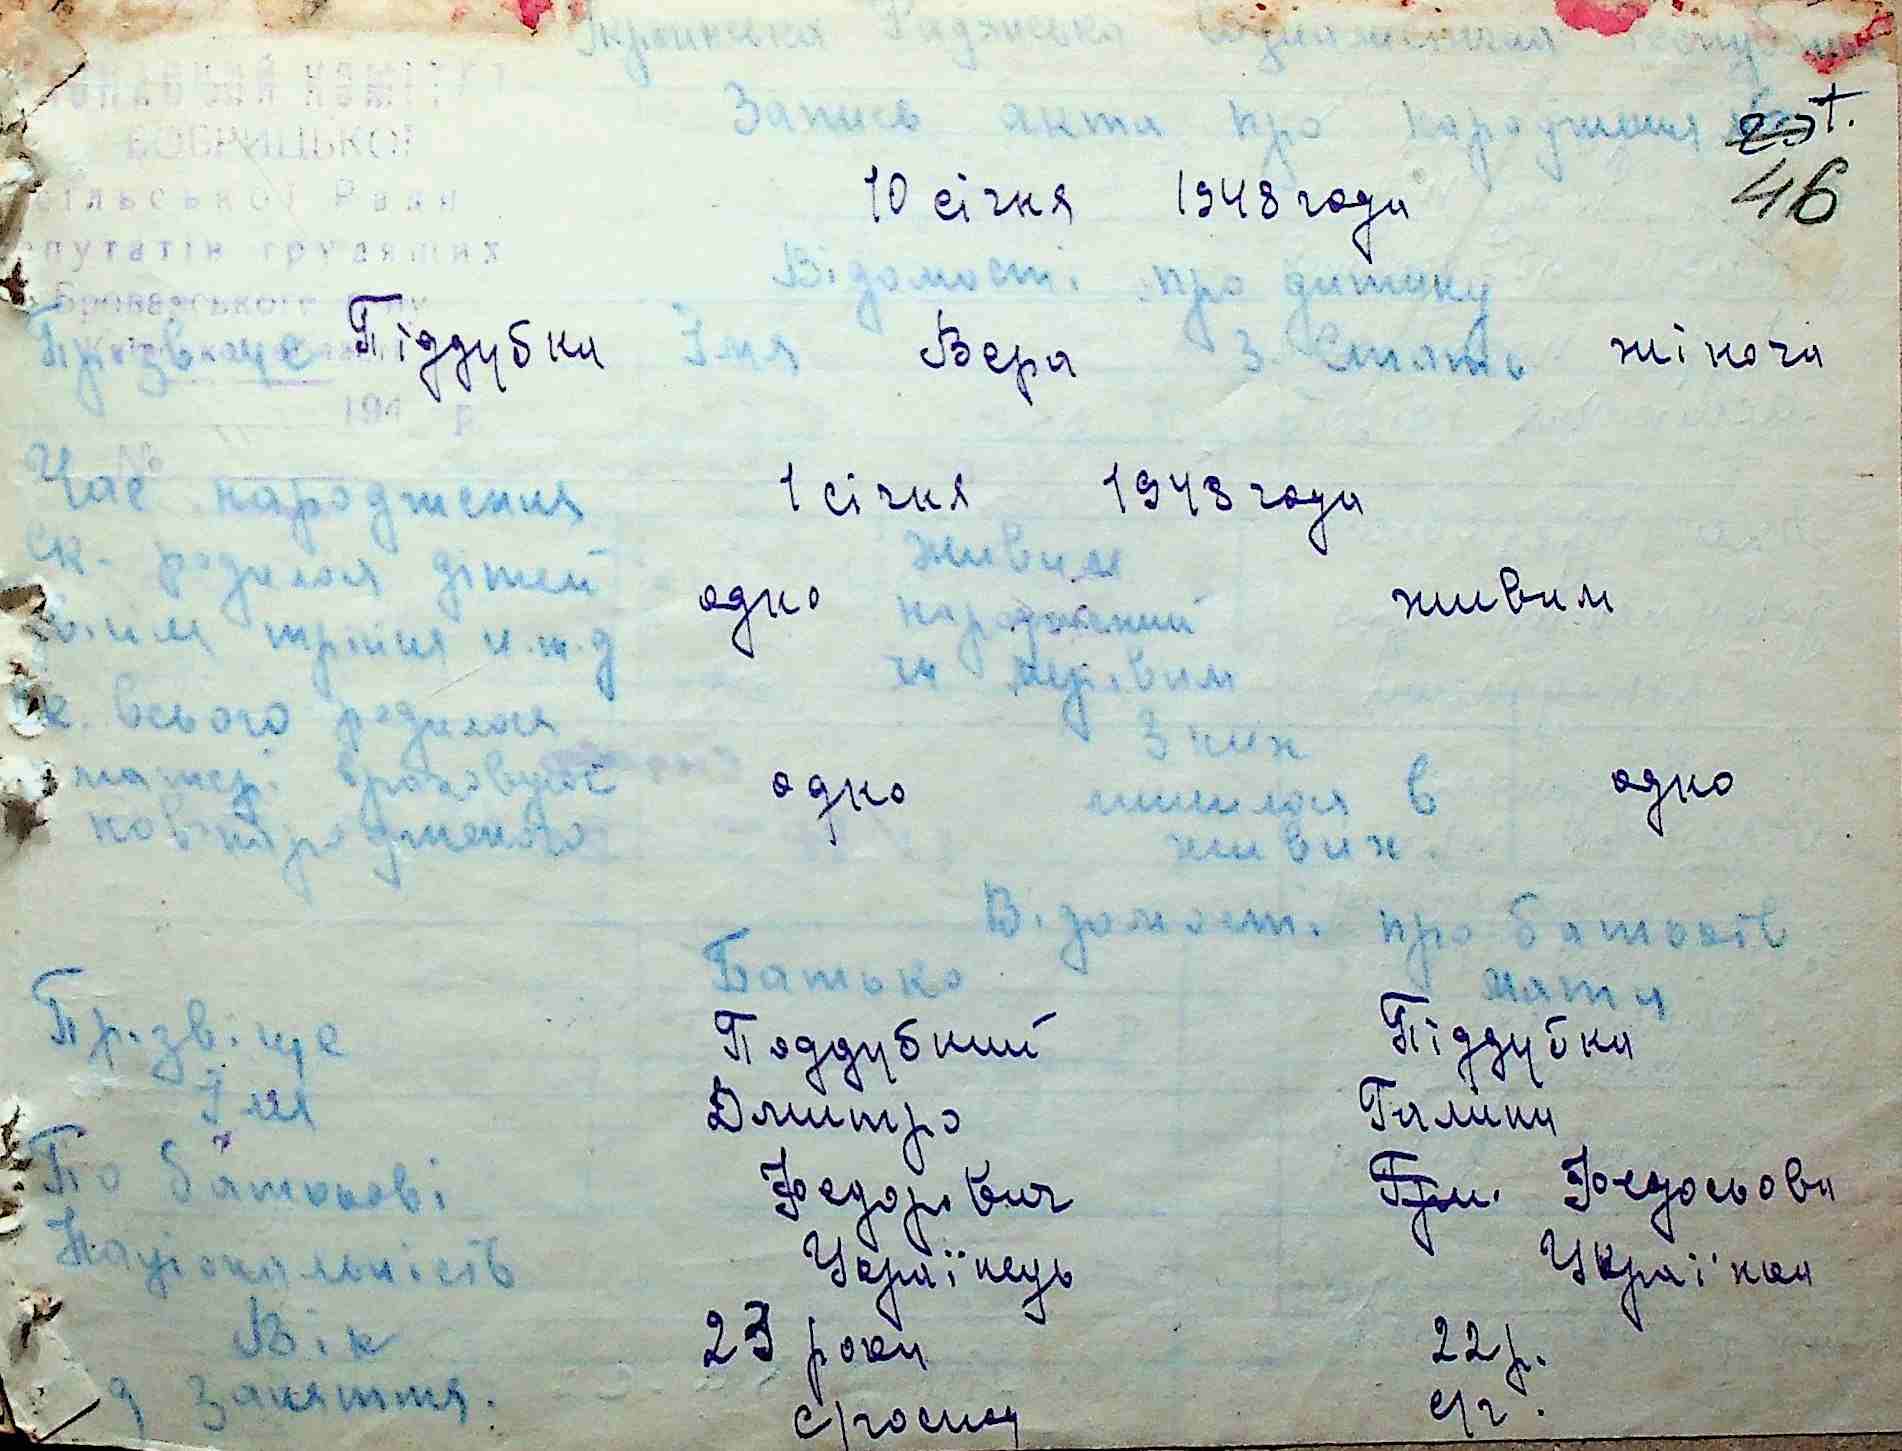 Українська Радянська Соціалистична Республіка
Запись акта про народження №
23 т.
46
10 січня 1948 года
Відомості про дитину
КОМІТЕТ
БОБРИЦЬКОЇ
сільської Ради
депутатів трудящих
Броварського р-ну
194 р
№
Прізвище Піддубна Імя Вера 3. Стать жіноча
Час народження 1 січня 1948 года
ск. родилося дітей
одно
живим
народжений
чи мертвим
живим
двійня трійня и.т.д
ск. всього родилося
матері враховуючи
новонародженого
одно
З них
лишилося в
живих.
одно
Відомості про батьків
Батько мати
Прізвіще Поддубний Піддубна
Імя Дмитро Галина
По батькові Федорівич Гри. Федосьовна
Національність Українець Українка
Вік 23 роки 22 р.
д заняття. с/господ с/г.